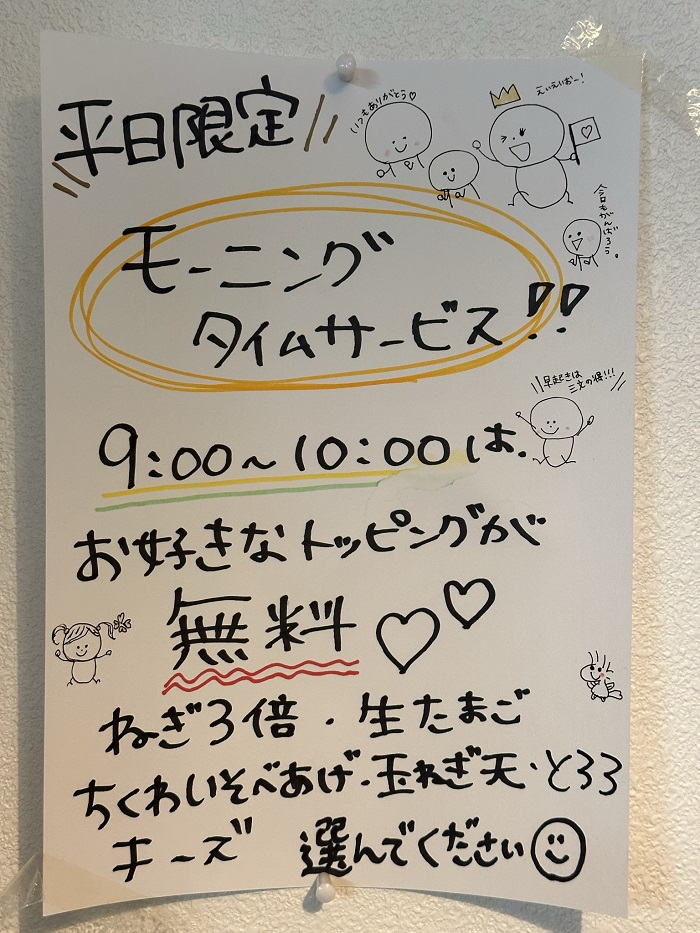 平日限定
いつもありがとう♡
えいえいおー!
今日もがんばろう。
モーニング
タイムサービス!!
早起きは
三文の得!!!
9:00~10:00は、
お好きなトッピングが
無料♡♡
ねぎ3倍・生たまご
ちくわいそべあげ・玉ねぎ天・とろろ
チーズ 選んでください